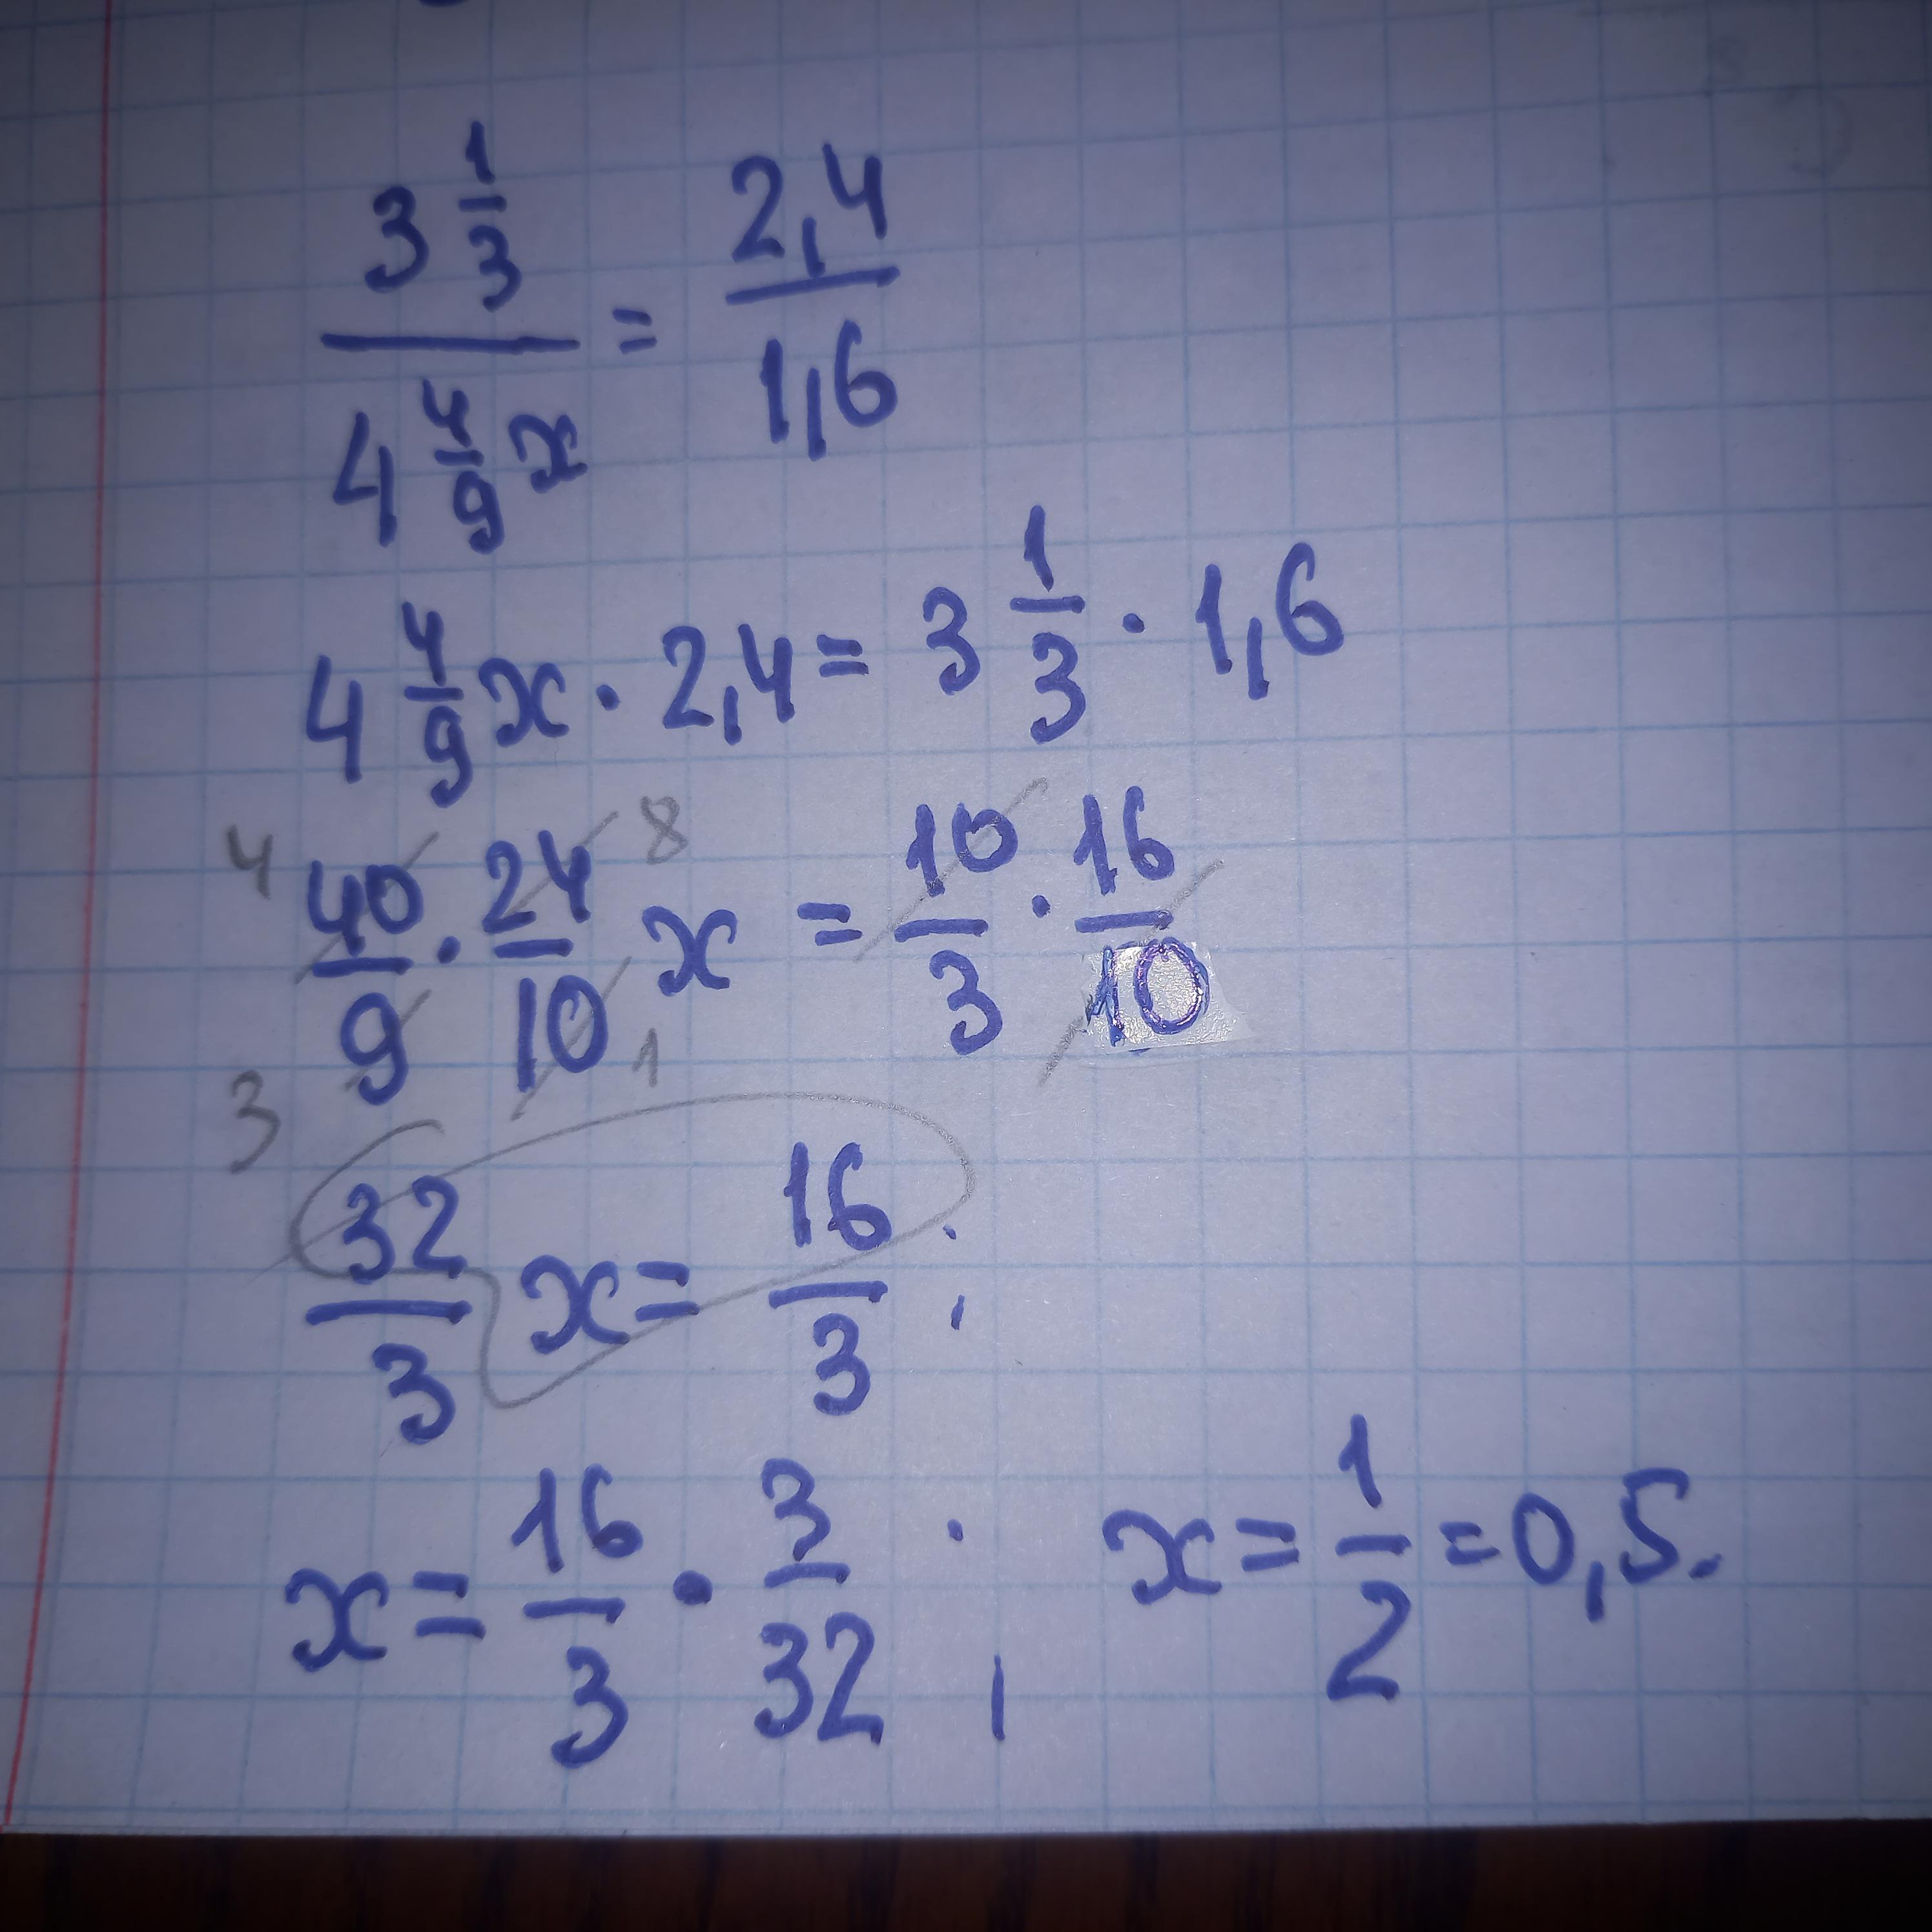 3 1/3 / 4 4/9 x = 2,4 / 1,6
4 4/9 x · 2,4 = 3 1/3 · 1,6
4 40/9 · 24/10 8 x = 10/3 · 16/10
3 1
32/3 x = 16/3 ;
x = 16/3 · 3/32 ; x = 1/2 = 0,5.